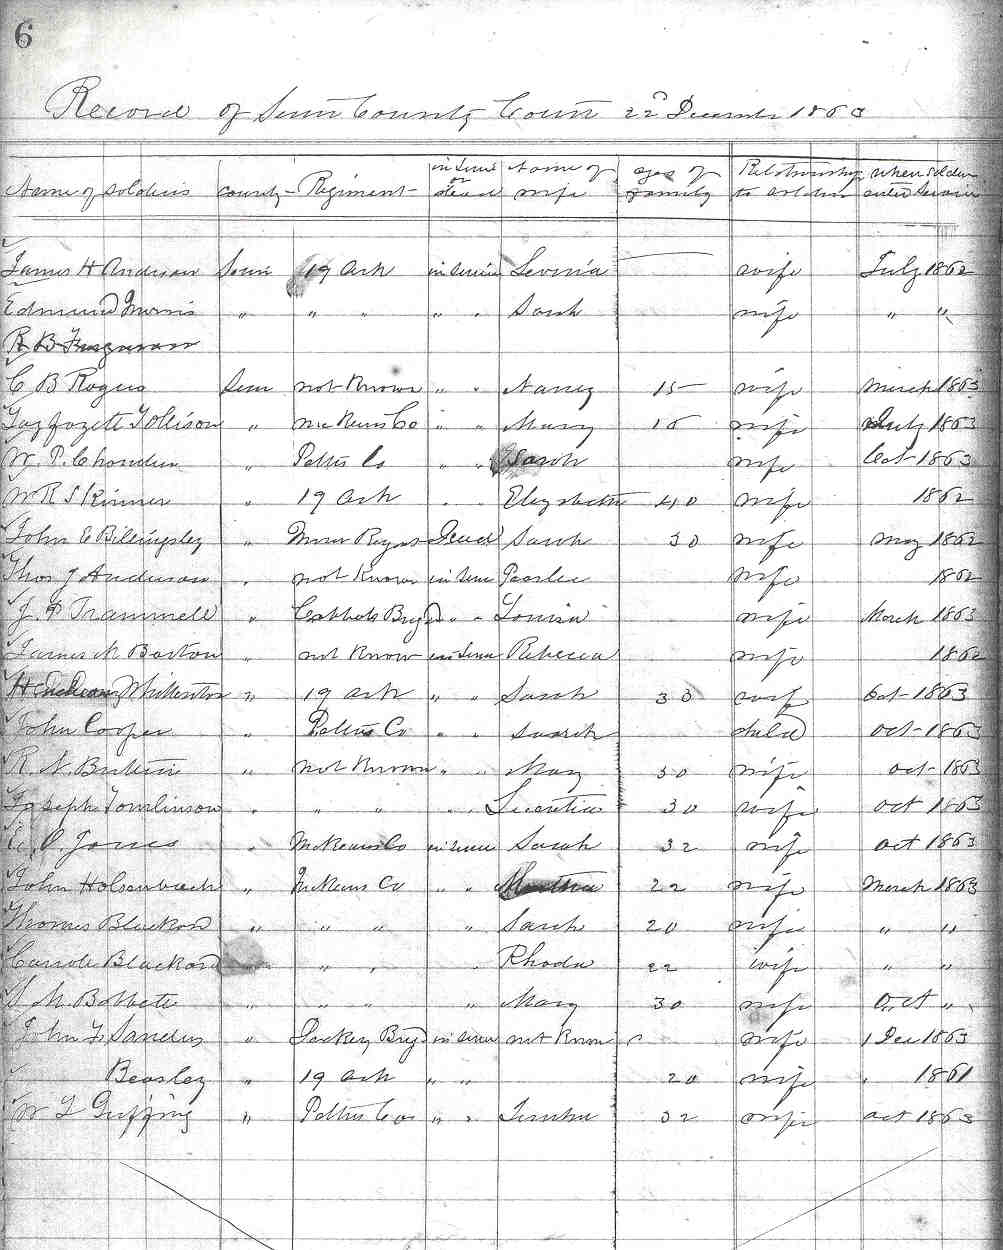 6
Record of Sevier County Court 22nd December 1863
Name of soldiers county Regiment in Servic or dead Name of wife age of Family Relationship to soldier when soldier entered Service
James H Anderson Sevier 19 Ark in Service Levinia wife July 1862
Edmund " " " " " Sarah wife " "
R B Furgurson
C B Rogers Sevier not Known " " Nancy 15 wife March 1863
Layfayette Tollison " McKeans Co " " Mary 15 wife July 1863
W. P. Chandler " Pettus Co " " Sarah wife Oct 1863
W R Skinner " 19 Ark " " Elizabeth 40 wife 1862
John E Billingsley " Regmt Dead Sarah 30 wife may 1862
Thos J Anderson " not Known in Servic wife 1862
J. F Trammell " Cabbels Brigd " " Louisa wife March 1863
James M Barton " not Know in Servic Rebecca wife 1862
Whittenton " 19 ark " " Sarah 33 wife Oct 1863
John Cooper " Pettus Co " " Sarah child oct 1863
R. N. " not Known " " Mary 30 wife oct 1863
Joseph Tomlinson " " " " " Lucretia 30 wife oct 1863
E. O. Jones " McKeans Co in servic Sarah 32 wife oct 1863
John Holsenback " McKeans Co " " Martha 22 wife March 1863
Thomas Blackard " " " " Sarah 20 wife " "
Carrole Blackard " " " " Rhoda 22 wife " "
S. M. Bobbett " " " " Mary 30 wife Oct "
John F Sanders " Dockery Brigd in Servic not Known wife 1 Dec 1863
Beasley " 19 Ark " " 20 wife " 1861
W L Griffing " Pettus Co " " 32 wife oct 1863